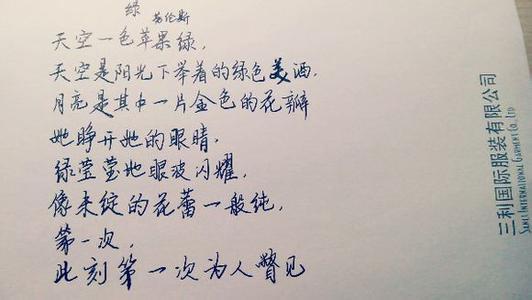 绿
劳伦斯
天空一色苹果绿,
天空是阳光下举着的绿色美酒.
月亮是其中一片金色的花瓣
她睁开她的眼睛,
绿莹莹地眼波闪耀,
像未绽的花蕾一般纯,
第一次,
此刻第一次为人瞥见
三利国际服装有限公司
SANLI INTERNATIONAL GARMENT CO. LTD